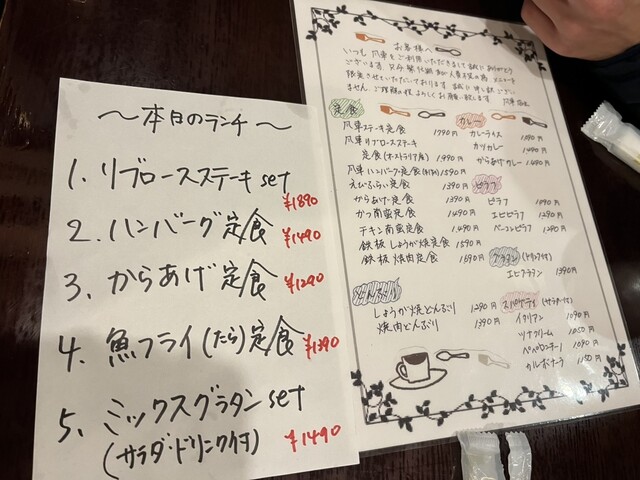 ～本日のランチ～
1. リブロースステーキset ¥1890
2. ハンバーグ定食 ¥1490
3. からあげ定食 ¥1290
4. 魚フライ(たら)定食 ¥1390
5. ミックスグラタンset
(サラダ・ドリンク付) ¥1490
お客様へ
いつも 風車をご利用いただきまして誠にありがとう
ございます。
定食
風車ステーキ定食 1790円
風車リブロースステーキ
定食(オーストラリア産) 1,990円
風車ハンバーグ定食 1590円
えびふらい定食 1390円
からあげ定食 1390円
かつ南蛮定食 1490円
チキン南蛮定食 1490円
鉄板しょうが焼定食 1590円
鉄板焼肉定食 1590円
しょうが焼どんぶり 1290円
焼肉どんぶり 1390円
カレー
カレーライス
カツカレー 1490円
からあげカレー 1490円
ピラフ
ピラフ 1090円
エビピラフ 1290円
ベーコンピラフ 1290円
グラタン
エビグラタン 1390円
スパゲティ(サラダ付)
イタリアン 1090円
ツナクリーム 1150円
ペペロンチーノ 1090円
カルボナーラ 1150円